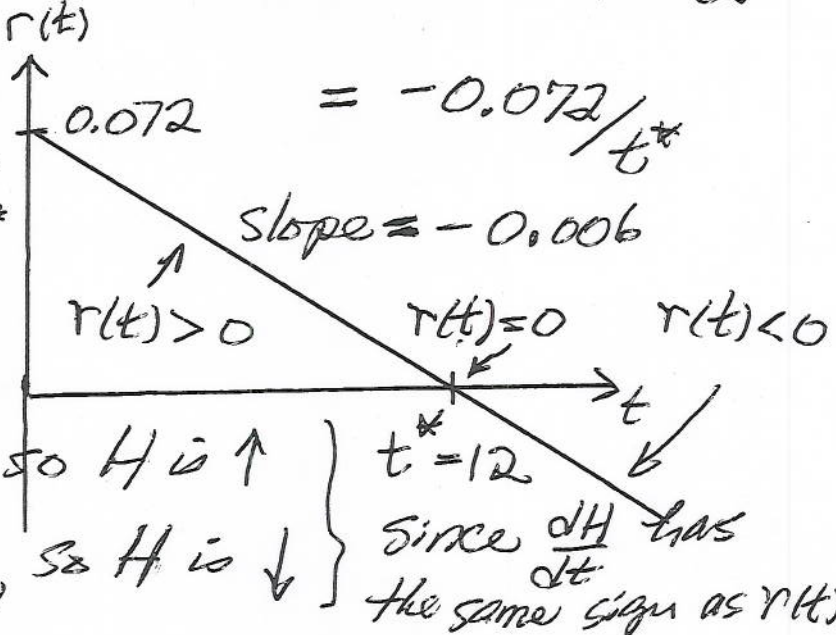 r(t)
0.072
= -0.072/t*
slope = -0.006
r(t)>0
r(t)=0
r(t)<0
t
t*=12
so H is ↑
so H is ↓
since dH/dt has
the same sign as r(t)